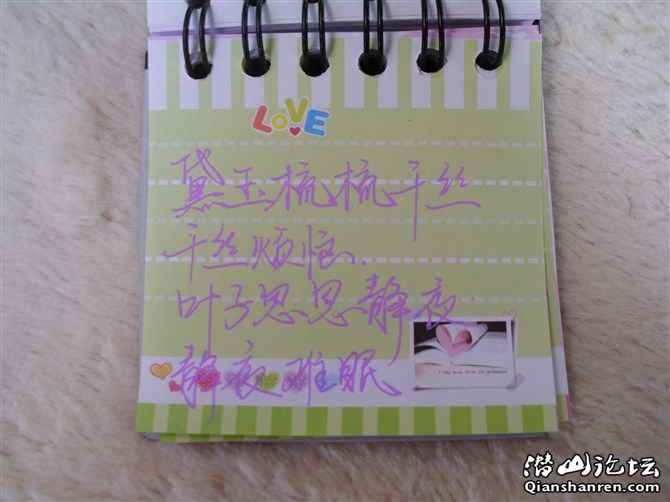 LOVE
黛玉梳梳千丝
千丝烦恼.
叶子思思静夜
静夜难眠
潜山论坛
Qianshanren.com